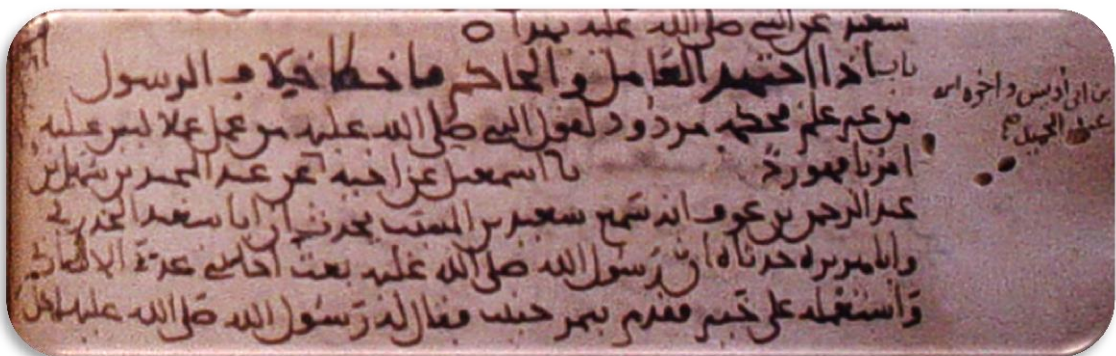 سعيد عن النبي صلى الله عليه بهذا
باب اذا اجتهد العامل والحاكم فاخطا خلاف الرسول
من غير علم فحكمه مردود لقول النبي صلى الله عليه من عمل عملا ليس عليه
امرنا فهو رد نا اسمعيل عن اخيه عن عبد المجيد بن سهيل بن
عبد الرحمن بن عوف انه سمع سعيد بن المسيب يحدث ان ابا سعيد الخدري
وابا هريرة حدثاه ان رسول الله صلى الله عليه بعث اخا بني عدي الانصاري
واستعمله على خيبر فقدم بتمر جنيب فقال له رسول الله صلى الله عليه اكل
بن ابي أويس واخوه اسمه
عبد الحميد